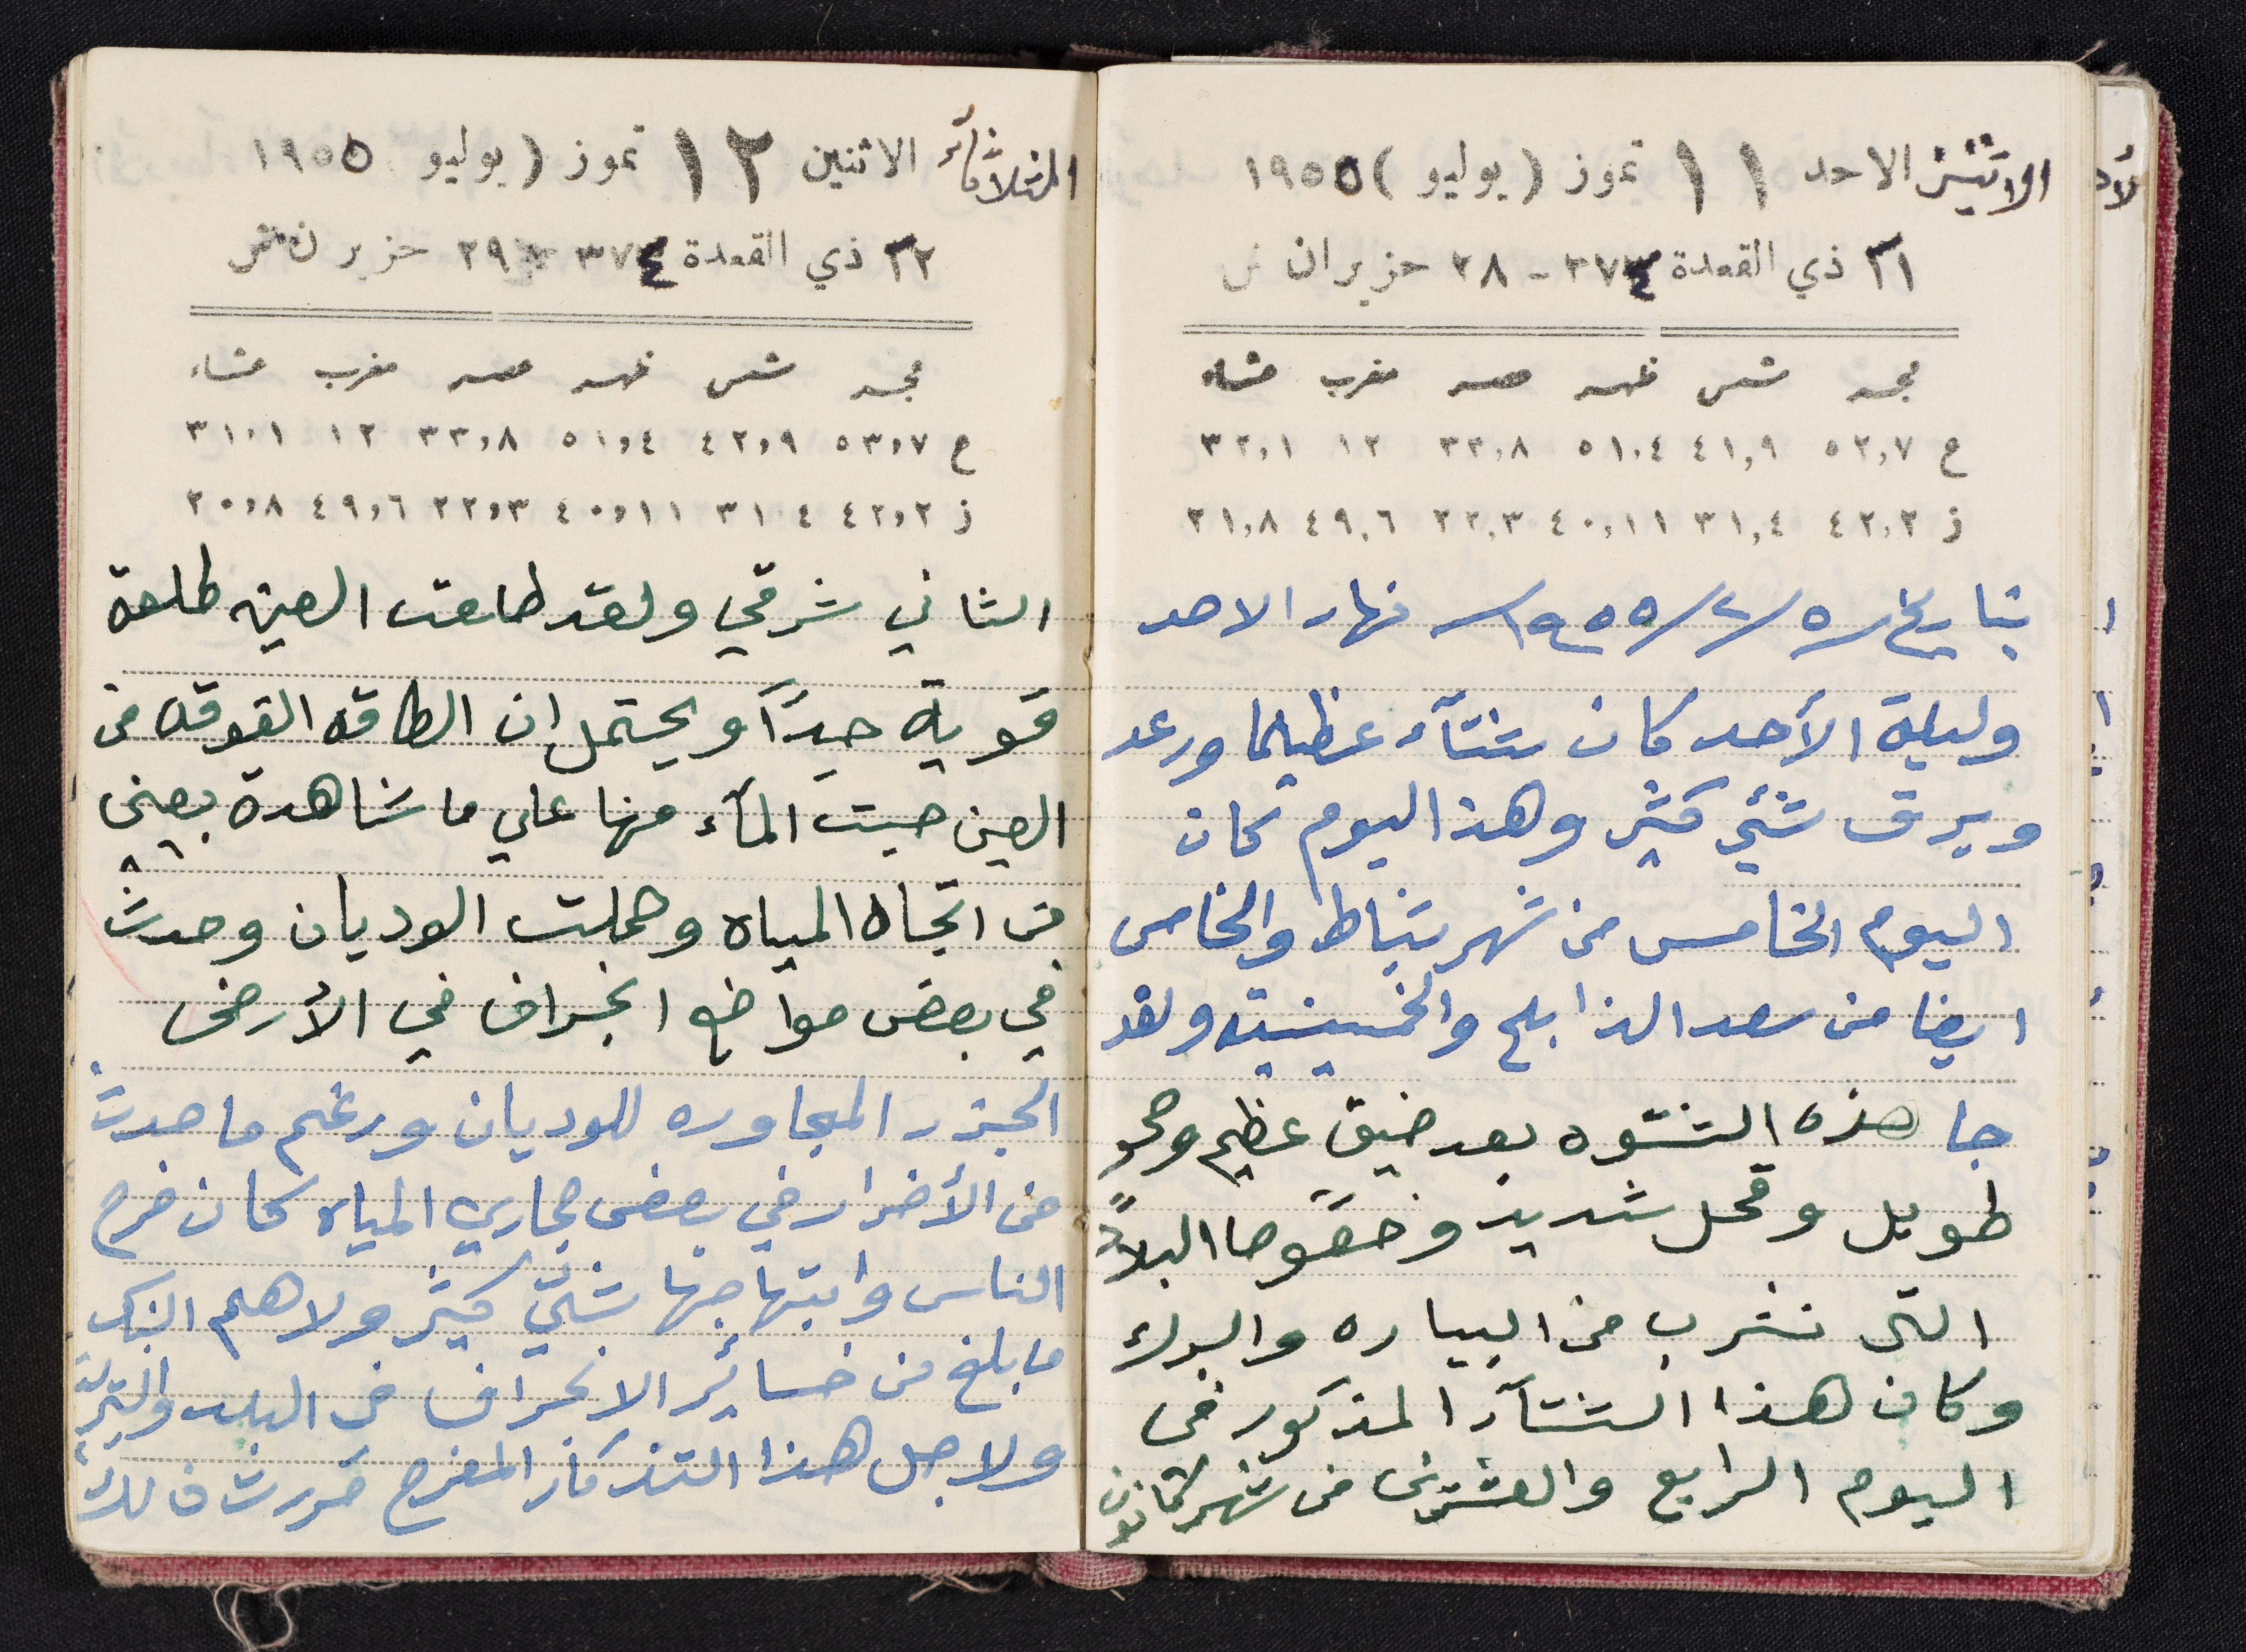 الاثنين الاحد ١١ تموز ( يوليو ) ١٩٥٥
٢١ ذي القعدة ٣٧٤ - ٢٨ حزيران ش
فجر شمس ظهر عصر مغرب عشاء
ع ٥٢,٧ ٤١,٩ ٥١,٤ ٣٣,٨ ١٢ ٣٢,١
ز ٤٢,٢ ٣١,٤ ٤٠,١١ ٢٢,٣ ٤٩,٦ ٢١,٨
بتاريخ ٥/٢/١٩٥٥ نهار الاحد
وليلة الأحد كان شتآء عظيما ورعد
وبرق شئي كثير وهذا اليوم كان
اليوم الخامس من شهر شباط والخامس
ايضا من سعد الذابلح والخمسينيه ولقد
جا هذه الشتوه بعد ضيق عظيم وصحو
طويل وقحل شديد وخصوصا البلاد
التى تشرب من البياره والبرك
وكان هذا الشتآء المذكور فى
اليوم الرابع والعشرين من شهر كانون
الثلاثآء الاثنين ١٢ تموز ( يوليو ١٩٥٥
٢٢ ذي القعدة ٣٧٤ ٢٩ حزيران ش
فجر شمس ظهر عصر مغرب عشاء
ع ٥٣,٧ ٤٢,٩ ٥١,٤ ٣٣,٨ ١٢ ٣١,١
ز ٤٢,٢ ٣١ ٤ ٤٠,١١ ٢٢,٣ ٤٩,٦ ٢٠,٨
الثاني شرقي ولقد طلعت العين طلعة
قوية جيدآ ويحتمل ان الطاقه الفوقه من
العين صبت المآء منها علي ما شاهدة بعينى
من اتجاه المياه وحملت الوديان وحدث
في بعض مواضع انجراف في الأرضى
الجزر المجاوره للوديان ورغم ما حدث
من الأضرار في بعض مجاري المياه كان فرح
الناس وابتهاجها شئي كثير ولا هم
ما بلغ من خسائر الانجراف فى البلد والبريّة
ولاجل هذا التذكار المفرح حررت ذالك